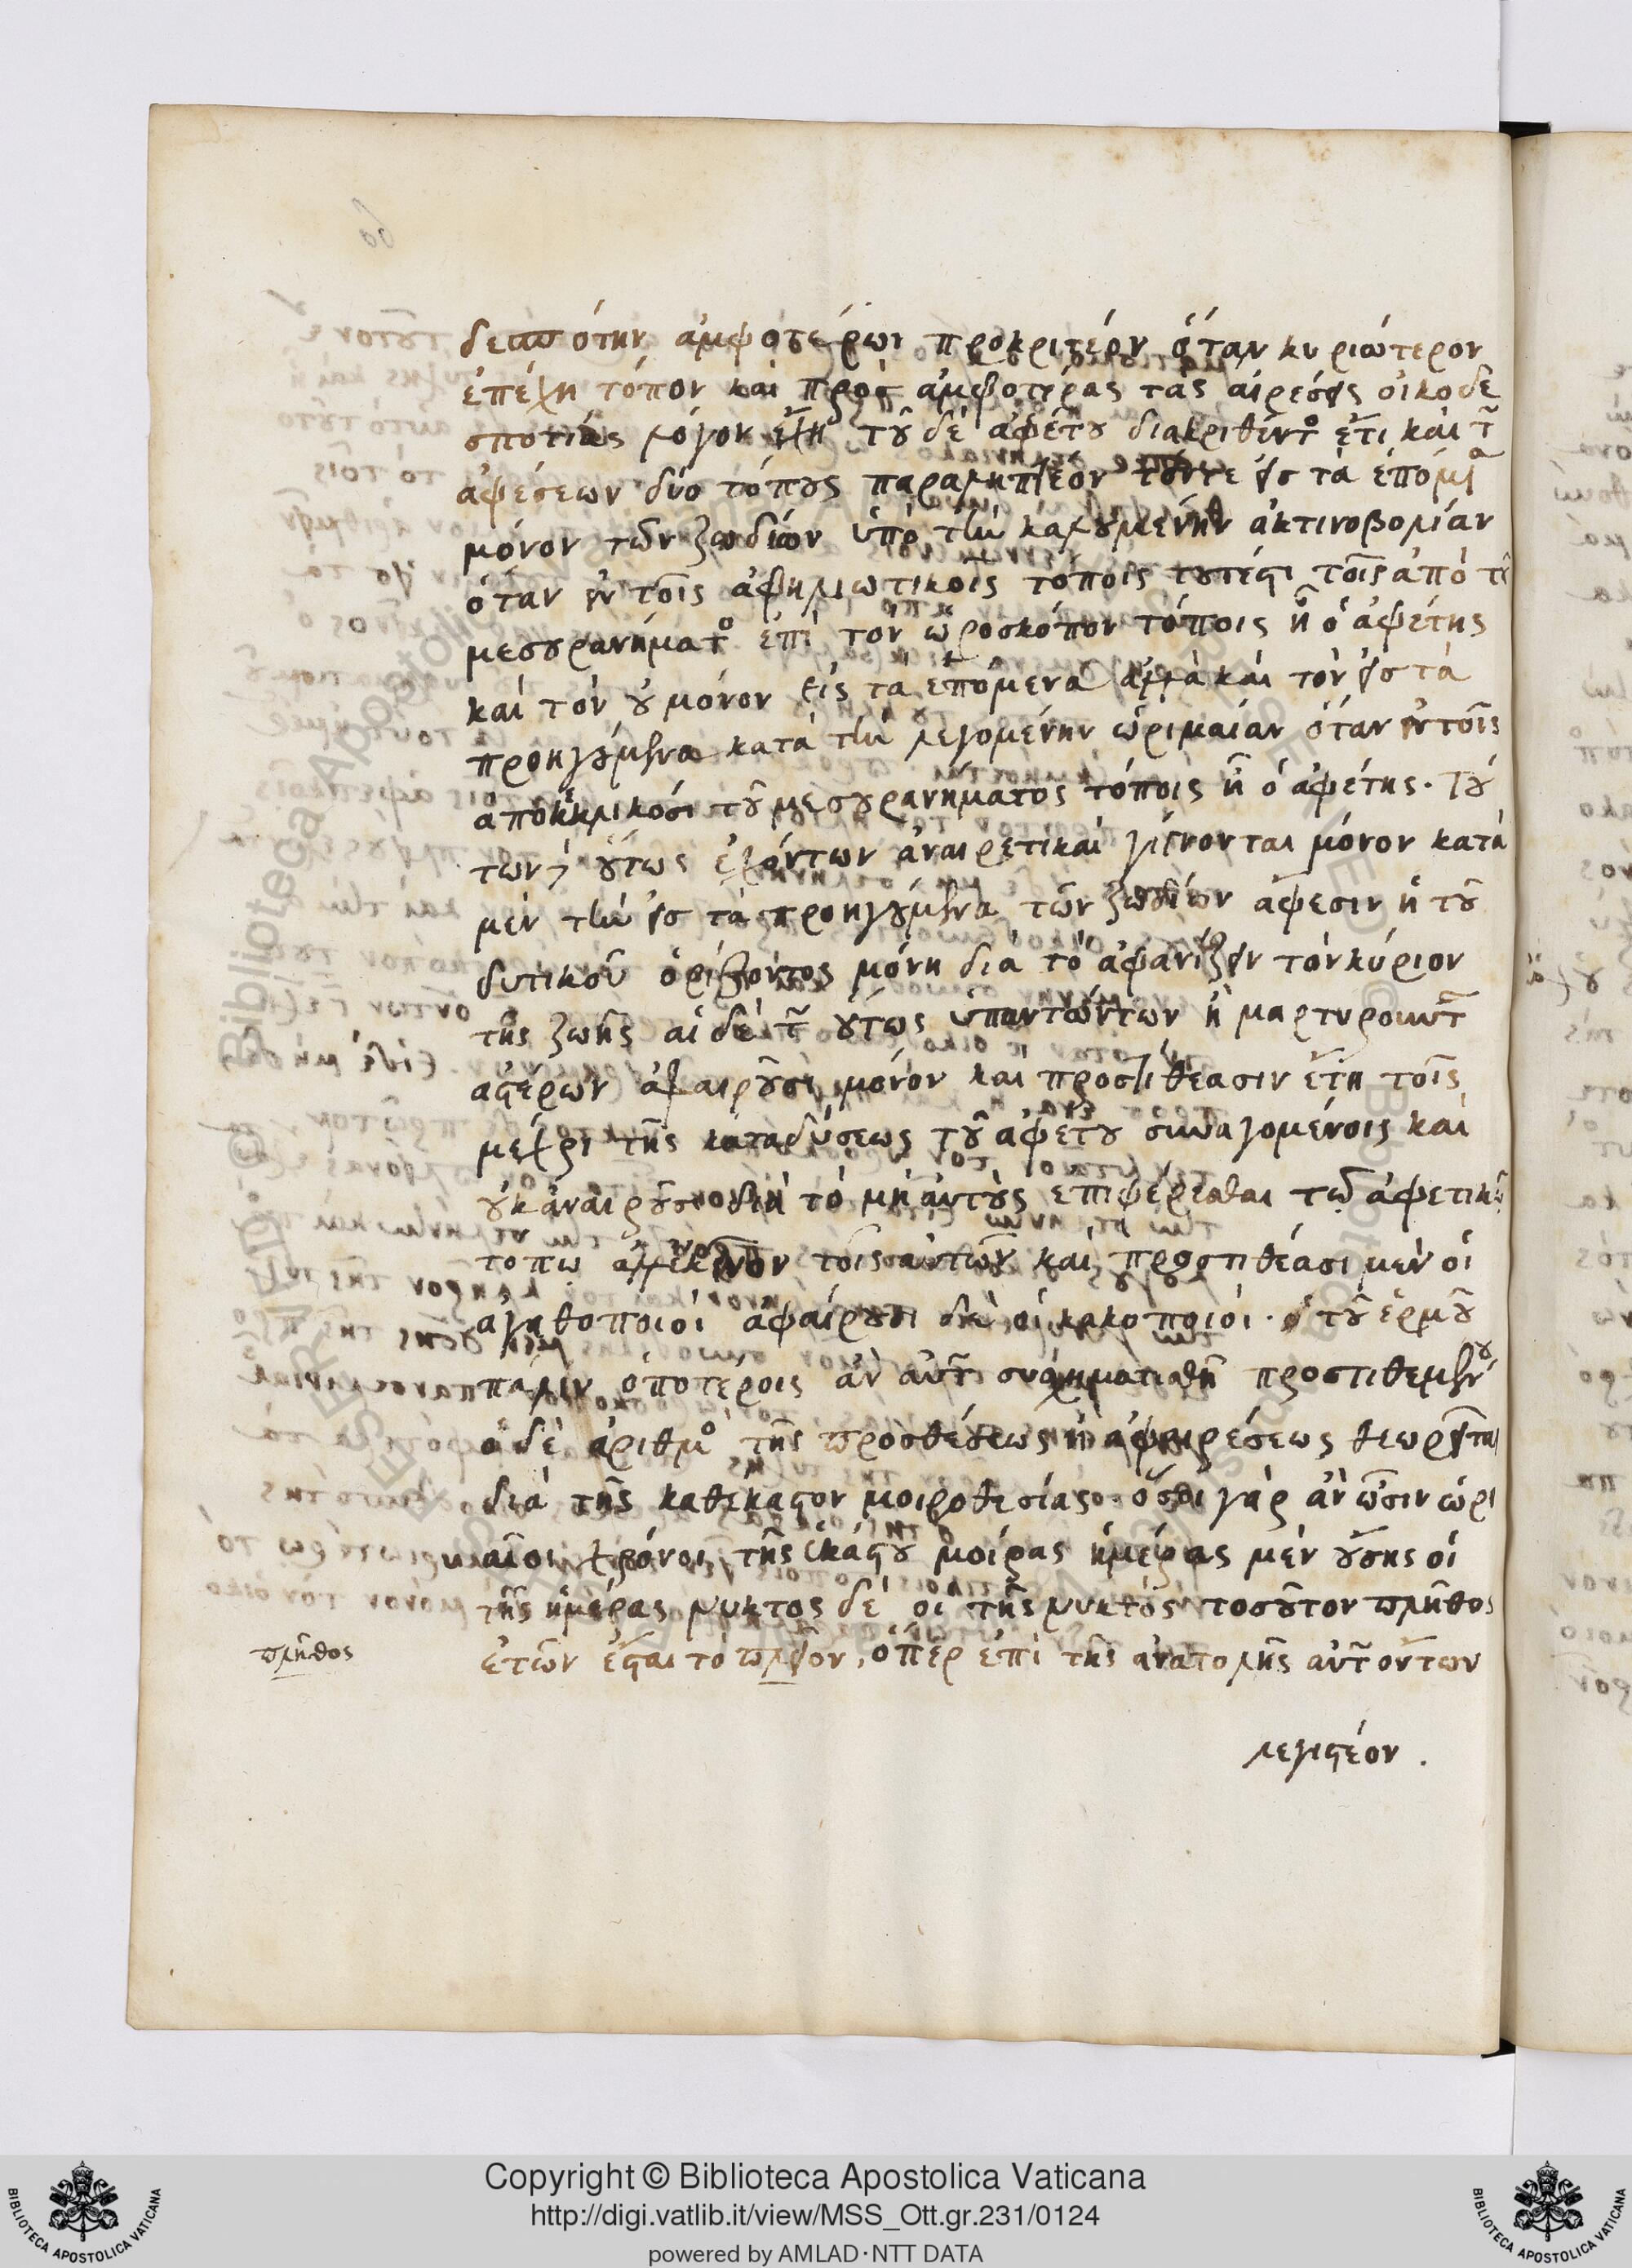 δεσπότην ἀμφοτέρων προκριτέον ὅταν κυριώτερον
ἐπέχη τόπον καὶ πρὸς ἀμφοτέρας τὰς αἱρέσεις οἰκοδε
σποτίας λόγον ἔχη τοῦ δὲ ἀφέτου διακριθέντος ἔτι καὶ τ
ἀφέσεων δύο τόπους παραληπτέον τόντε εἰς τὰ ἑπόμ
μόνον τῶν ζωδίων ὑπὸ τὴν καλουμένην ἀκτινοβολίαν
ὅταν ἐν τοῖς ἀφηλιωτικοῖς τόποις τουτέστι τοῖς ἀπὸ τοῦ
μεσουρανήματος ἐπὶ τὸν ὡροσκόπον τόποις ἦ ὁ ἀφέτης
καὶ τὸν οὐ μόνον εἰς τὰ ἑπόμενα ἀλλὰ καὶ τὸν εἰς τὰ
προηγούμενα κατὰ τὴν λεγομένην ὡριμαίαν ὅταν ἐν τοῖς
ἀποκεκλικόσι τοῦ μεσουρανήματος τόποις ἦ ὁ ἀφέτης. Τού
των οὕτως ἐχόντων ἀναιρετικαὶ γίνονται μόνον κατὰ
μὲν τὴν εἰς τὰ προηγούμενα τῶν ζωδίων ἄφεσιν ἡ τοῦ
δυτικοῦ ὁρίζοντος μόνη διὰ τὸ ἀφανίζειν τὸν κύριον
τῆς ζωῆς αἱ δὲ τ οὕτως ὑπαντώντων ἢ μαρτυρούντ
ἀστέρων ἀφαιροῦσι μόνον καὶ προστιθέασιν ἔτη τοῖς
μέχρι τῆς καταδύσεως τοῦ ἀφέτου συναγομένοις καὶ
οὐκ ἀναιροῦσι διὰ τὸ μὴ αὐτοὺς ἐπιφέρεσθαι τῷ ἀφετικῷ
τόπῳ ἀλλ' ἐκεῖνον τοῖς αὐτῶν καὶ προστιθέασι μὲν οἱ
ἀγαθοποιοὶ ἀφαίρουσι δὲ οἱ κακοποιοί. ὁ τοῦ ἑρμοῦ
πάλιν ὁποτέροις ἂν αὐτ συσχηματισθῆ προστιθεμένου
ὁ δὲ ἀριθμὸς τῆς προσθέσεως ἢ ἀφαιρέσεως θεωρεῖται
διὰ τῆς καθέκαστον μοιροθεσίας. ὅσοι γὰρ ἂν ὦσιν ὡρι
αῖοι χρόνοι τῆς ἑκάστου μοίρας ἡμέρας μὲν οὔσης οἱ
τῆς ἡμέρας νυκτὸς δὲ οἱ τῆς νυκτὸς τοσοῦτον πλῆθος
πλῆθος
ἐτῶν ἔσται τὸ πλεῖον, ὅπερ ἐπὶ τῆς ἀνατολῆς αὐτ ὄντων
λεγιστέον.
Copyright © Biblioteca Apostolica Vaticana
http://digi.vatlib.it/view/MSS_Ott.gr.231/0124
powered by AMLAD·NTT DATA
BIBLIOTECA APOSTOLICA VATICANA
BIBLIOTECA APOSTOLICA VATICANA